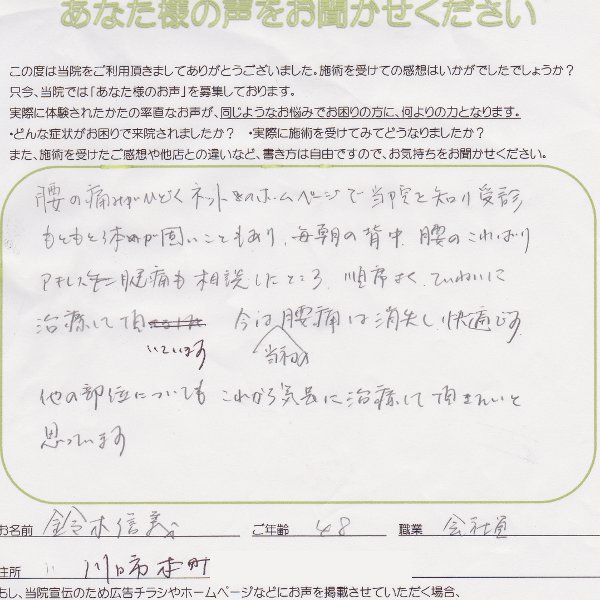 あなた様の声をお聞かせください
この度は当院をご利用頂きましてありがとうございました。施術を受けての感想はいかがでしたでしょうか?
只今、当院では「あなた様のお声」を募集しております。
実際に体験されたかたの率直なお声が、同じようなお悩みでお困りの方に、何よりの力となります。
・どんな症状がお困りで来院されましたか? ・実際に施術を受けてみてどうなりましたか?
また、施術を受けたご感想や他店との違いなど、書き方は自由ですので、お気持ちをお聞かせください。
腰の痛みがひどくネットのホームページで当院を知り受診
もともと体が固いこともあり、毎朝の背中、腰のこわばり
アキレス腱痛も相談したところ、順序よく、ていねいに
治療して頂いています 今は腰痛は消失し快適です。
当初の
他の部位についても これから気長に治療して頂きたいと
思っています
お名前 鈴木信義 ご年齢 48 職業 会社員
住所 川口市本町
もし、当院宣伝のため広告チラシやホームページなどにお声を掲載させていただく場合、